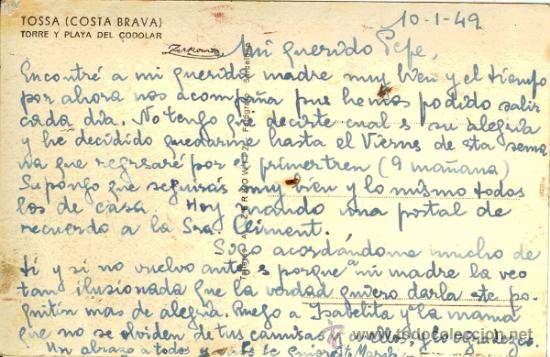 TOSSA (COSTA BRAVA)
TORRE Y PLAYA DEL CODOLAR
10-1-49
Mi querido Pepe,
Encontré a mi querida madre muy bien y el tiempo
por ahora nos acompaña pues hemos podido salir
cada dia. No tengo que decirte cual es su alegria
y he decidido quedarme hasta el Viernes de esta sema
na que regresaré por el primer tren (9 mañana)
Supongo que seguirás muy bien y lo mismo todos
los de casa. Hoy mando una postal de
recuerdo a la Sra. Climent.
Sigo acordándome mucho de
ti y si no vuelvo antes es porque a mi madre la veo
tan ilusionada que la verdad quiero darla este po
quitin mas de alegria. Ruego a Isabelita y la mama
que no se olviden de tus camisas
Un abrazo a todos y
Zerkowitz
A. ZERKOWITZ Fotógrafo Barcelona
todocoleccion.net